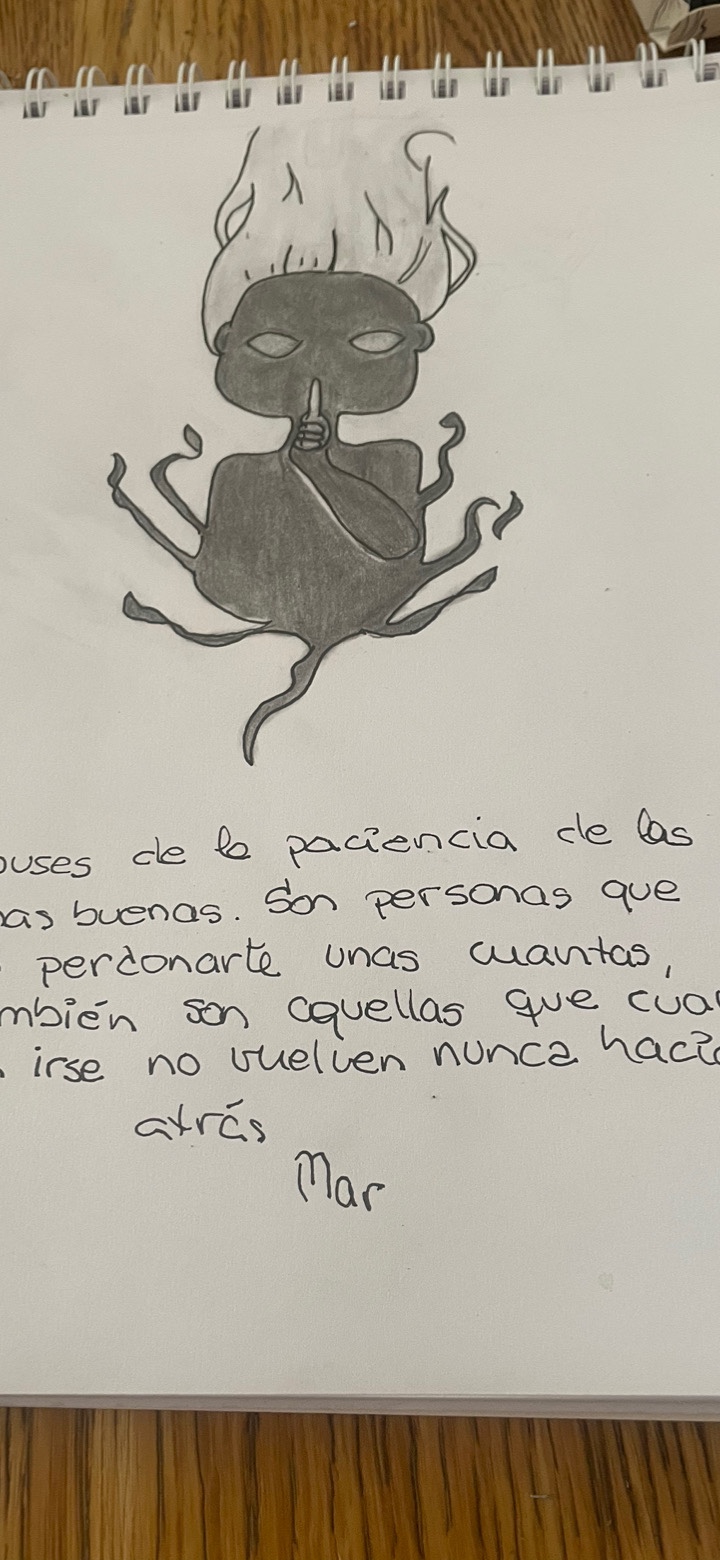 ouses de la paciencia de las
nas buenas. Son personas que
perdonarte unas cuantas,
mbién son aquellas que cua
irse no vuelven nunca hacia
atrás
Mar